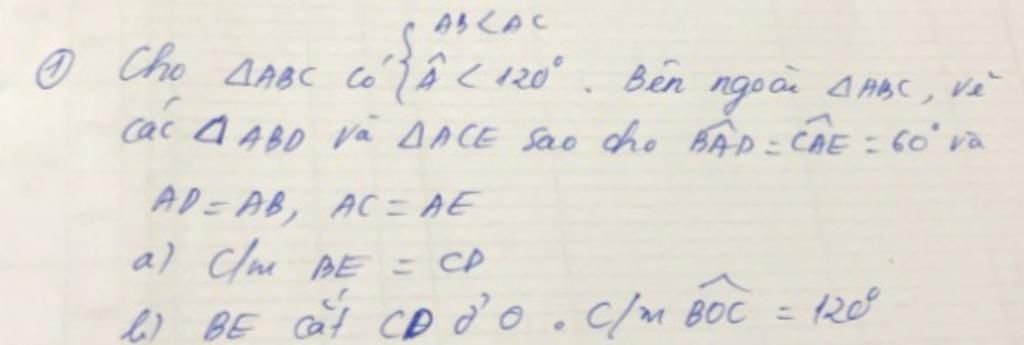 AB < AC
① Cho ΔABC có { Â < 120°. Bên ngoài ΔABC, vẽ
các ΔABD và ΔACE sao cho BÂD = CÂE = 60° và
AD = AB, AC = AE
a) C/m BE = CD
b) BE cắt CD ở O. C/m BÔC = 120°